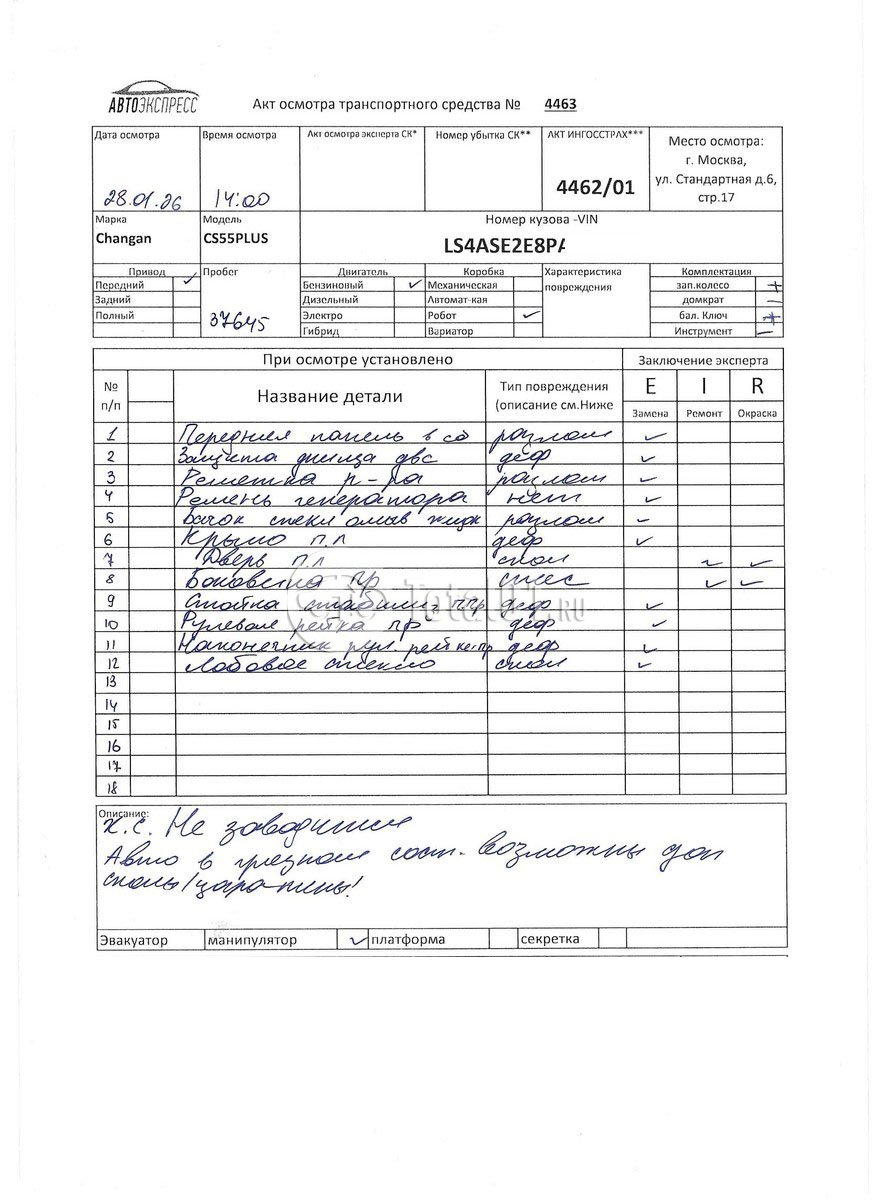 АВТОЭКСПРЕСС
Акт осмотра транспортного средства № 4463
Дата осмотра Время осмотра Акт осмотра эксперта СК* Номер убытка СК** АКТ ИНГОССТРАХ*** Место осмотра:
г. Москва,
28.01.26 14:00 4462/01 ул. Стандартная д.6,
стр.17
Марка Модель Номер кузова -VIN
Changan CS55PLUS LS4ASE2E8PA
Привод Пробег Двигатель Коробка Характеристика Комплектация
Передний ✓ Бензиновый ✓ Механическая повреждения зап.колесо +
Задний Дизельный Автомат-кая домкрат –
Полный 37645 Электро Робот ✓ бал. Ключ +
Гибрид Вариатор Инструмент –
При осмотре установлено Заключение эксперта
№ п/п Название детали Тип повреждения (описание см.Ниже E I R
Замена Ремонт Окраска
1 Передняя панель в сб разлом ✓
2 Защита днища двс деф ✓
3 Решетка р-ра разлом ✓
4 Ремень генератора нет ✓
5 Бачок стекл омыв жидк разлом ✓
6 Крыло п.л деф ✓
7 Дверь п.л скол ✓ ✓
8 Боковина пр ✓ ✓
9 Стойка стабилиз п.пр деф ✓
10 Рулевая рейка пр деф ✓
11 Наконечник рул. рейки пр деф ✓
12 Лобовое стекло скол ✓
13
14
15
16
17
18
Описание:
х.с. Не заводится
Авто в грязном сост. возможны доп
сколы/царапины!
Эвакуатор манипулятор ✓ платформа секретка
TotalOff.RU